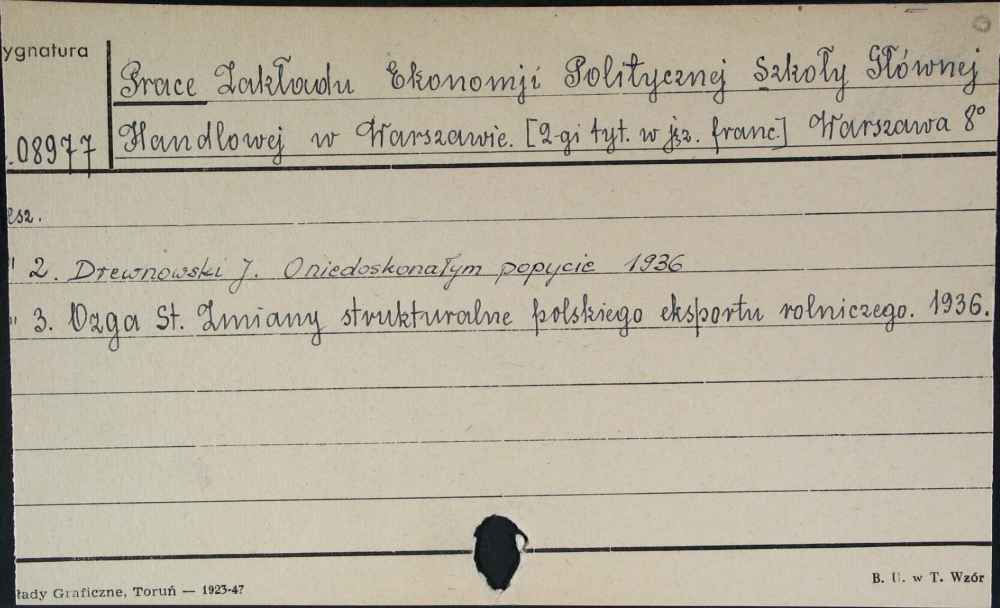 ygnatura
Prace Zakładu Ekonomji Politycznej Szkoły Głównej
.08977 Handlowej w Warszawie. [2-gi tyt. w jęz. franc.] Warszawa 8°
esz.
" 2. Drewnowski J. O niedoskonałym popycie 1936
" 3. Ozga St. Zmiany strukturalne polskiego eksportu rolniczego. 1936.
łady Graficzne, Toruń — 1923-47
B. U. w T. Wzór